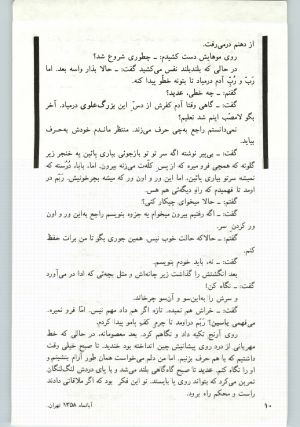 از دهنم درمی‌رفت.
روی موهایش دست کشیدم: ـ چطوری شروع شد؟
در حالی که بلندبلند نفس می‌کشید گفت: ـ حالا بذار واسه بعد. اما
رَبّ و رُبّ آدم درمیاد تا بتونه خطو پیدا کنه.
گفتم: ـ چه خطی، عدید؟
گفت: ـ گاهی وقتا آدم کفرش از دس این بزرگ‌علوی درمیاد. آخر
بگو لامصّب اینم شد تعلیم؟
نمی‌دانستم راجع به‌چی حرف می‌زند. منتظر ماندم خودش به‌حرف
بیاید.
گفت: ـ بی‌پیر نوشته اگه سر تو تو بازجوئی بیاری پائین یه خنجر زیر
گلوته که همچی فرو میره که از پس کله‌ت می‌زنه بیرون. اما، بابا، دُرُسته که
نمیشه سرتو بیاری پائین، اما این ور و اون ور که میشه بچرخونیش. رَبّم در
اومد تا فهمیدم که راه دیگه‌ئی هم هس.
گفتم: ـ حالا میخوای چیکار کنی؟
گفت: ـ اگه رفتیم بیرون میخوام یه جزوه بنویسم راجع به‌این ور و اون
ور کردن سر.
گفتم: ـ حالاکه حالت خوب نیس. همین جوری بگو تا من برات حفظ
کنم.
گفت: ـ نه، باید خودم بنویسم.
بعد انگشتش را گذاشت زیر چانه‌اش و مثل بچه‌ئی که ادا در می‌آورد
گفت: ـ نگاه کن!
و سرش را به‌این‌سو و آن‌سو چرخاند.
گفت: ـ خراش هم نمیده. تازه اگر هم داد مهم نیس. امّا فرو نمیره.
می‌فهمی یاسین؟ رَبّم دراومد تا چرم کفو یامو پیدا کردم.
روی آرنج تکیه داد و نگاهم کرد. بعد معصومانه، در حالی که خط
مهربانی از درد روی پیشانیش چین انداخته بود خندید. تا صبح خیلی وقت
داشتیم که با هم حرف بزنیم. اما من دلم می‌خواست همان طور آرام بنشینم و
او را نگاه کنم. عدید تا صبح گاه‌گاهی بلند می‌شد و با پای دردش لنگ‌لنگان
تمرین می‌کرد که بتواند روی پا بایستد. تو این فکر بود که اگر ملاقاتی دادند
راست و محکم راه برود.
آبانماه ۱۳۵۸ تهران.
۱۰